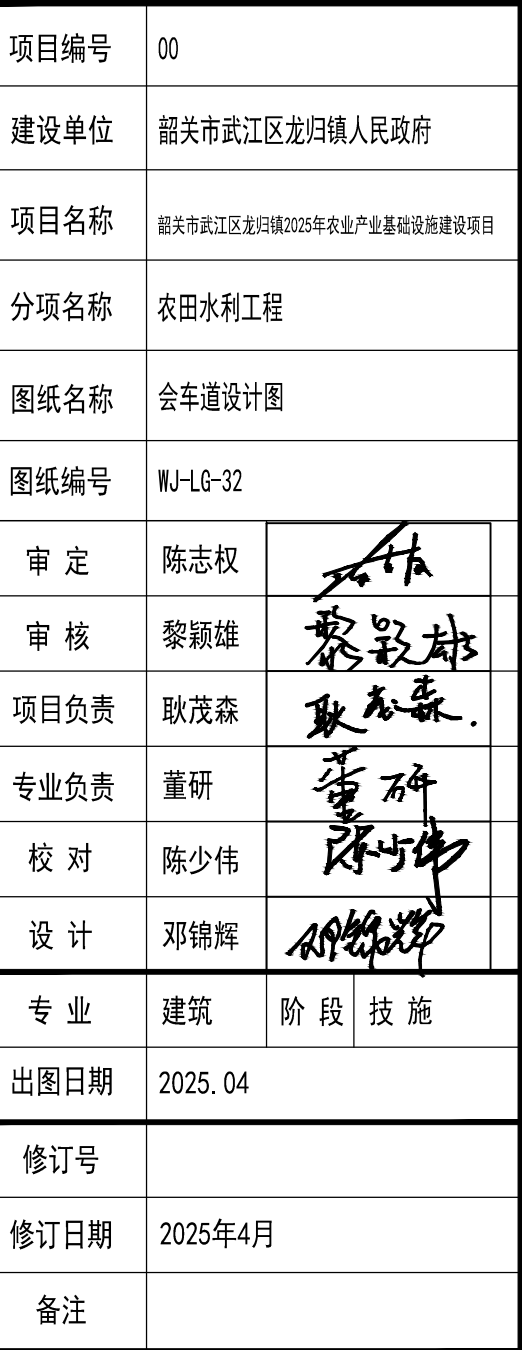 项目编号 00
建设单位 韶关市武江区龙归镇人民政府
项目名称 韶关市武江区龙归镇2025年农业产业基础设施建设项目
分项名称 农田水利工程
图纸名称 会车道设计图
图纸编号 WJ-LG-32
审 定 陈志权
审 核 黎颖雄 黎颖雄
项目负责 耿茂森 耿茂森.
专业负责 董研 董研
校 对 陈少伟 陈少伟
设 计 邓锦辉 邓锦辉
专 业 建筑 阶 段 技 施
出图日期 2025.04
修订号
修订日期 2025年4月
备注